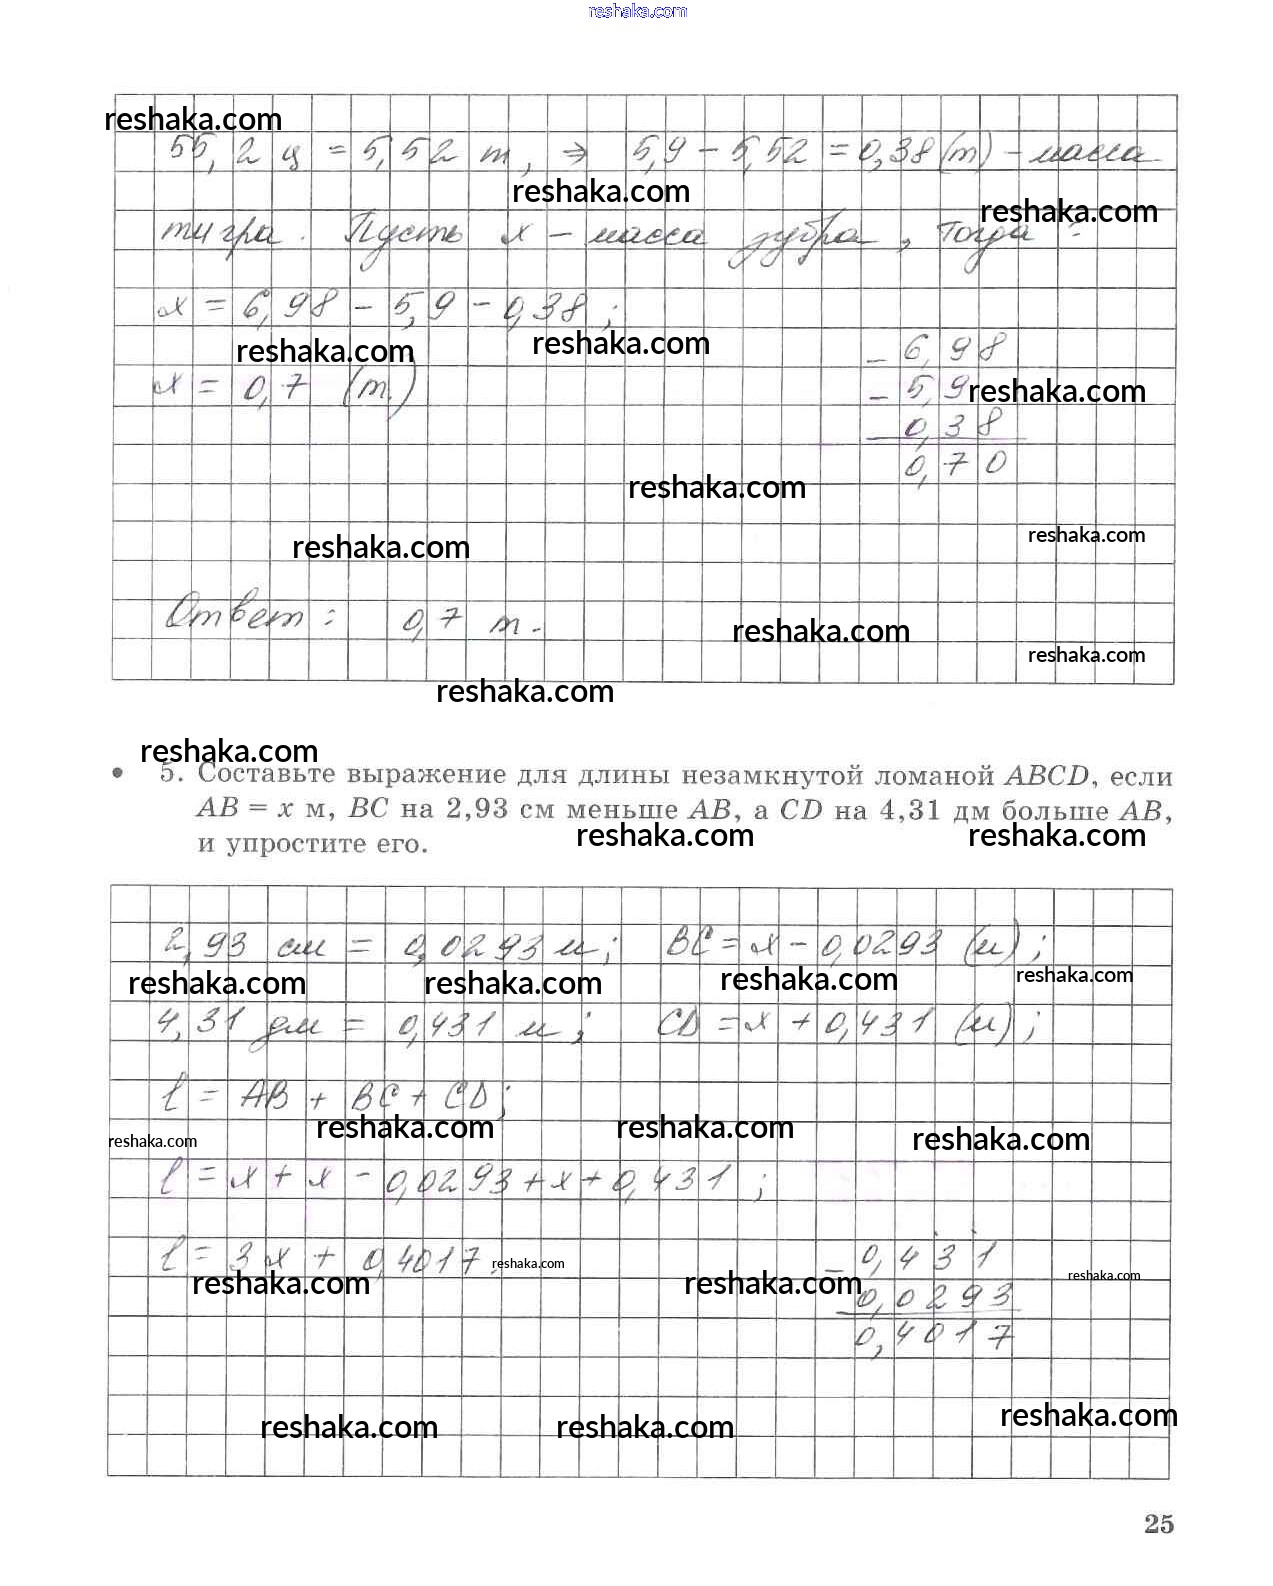 reshaka.com
reshaka.com
55,2 ц = 5,52 т, ⇒ 5,9 - 5,52 = 0,38 (т) - масса
reshaka.com
reshaka.com
тигра. Пусть x - масса зубра, тогда:
x = 6,98 - 5,9 - 0,38;
reshaka.com
reshaka.com
- 6,98
x = 0,7 (т)
- 5,9
reshaka.com
0,38
0,70
reshaka.com
reshaka.com
reshaka.com
Ответ: 0,7 т.
reshaka.com
reshaka.com
reshaka.com
reshaka.com
• 5. Составьте выражение для длины незамкнутой ломаной ABCD, если
AB = x м, BC на 2,93 см меньше AB, а CD на 4,31 дм больше AB,
reshaka.com
reshaka.com
и упростите его.
2,93 см = 0,0293 м; BC = x - 0,0293 (м);
reshaka.com
reshaka.com
reshaka.com
reshaka.com
4,31 дм = 0,431 м; CD = x + 0,431 (м);
l = AB + BC + CD;
reshaka.com
reshaka.com
reshaka.com
reshaka.com
l = x + x - 0,0293 + x + 0,431;
l = 3x + 0,4017.
reshaka.com
- 0,431
reshaka.com
reshaka.com
reshaka.com
0,0293
0,4017
reshaka.com
reshaka.com
reshaka.com
25